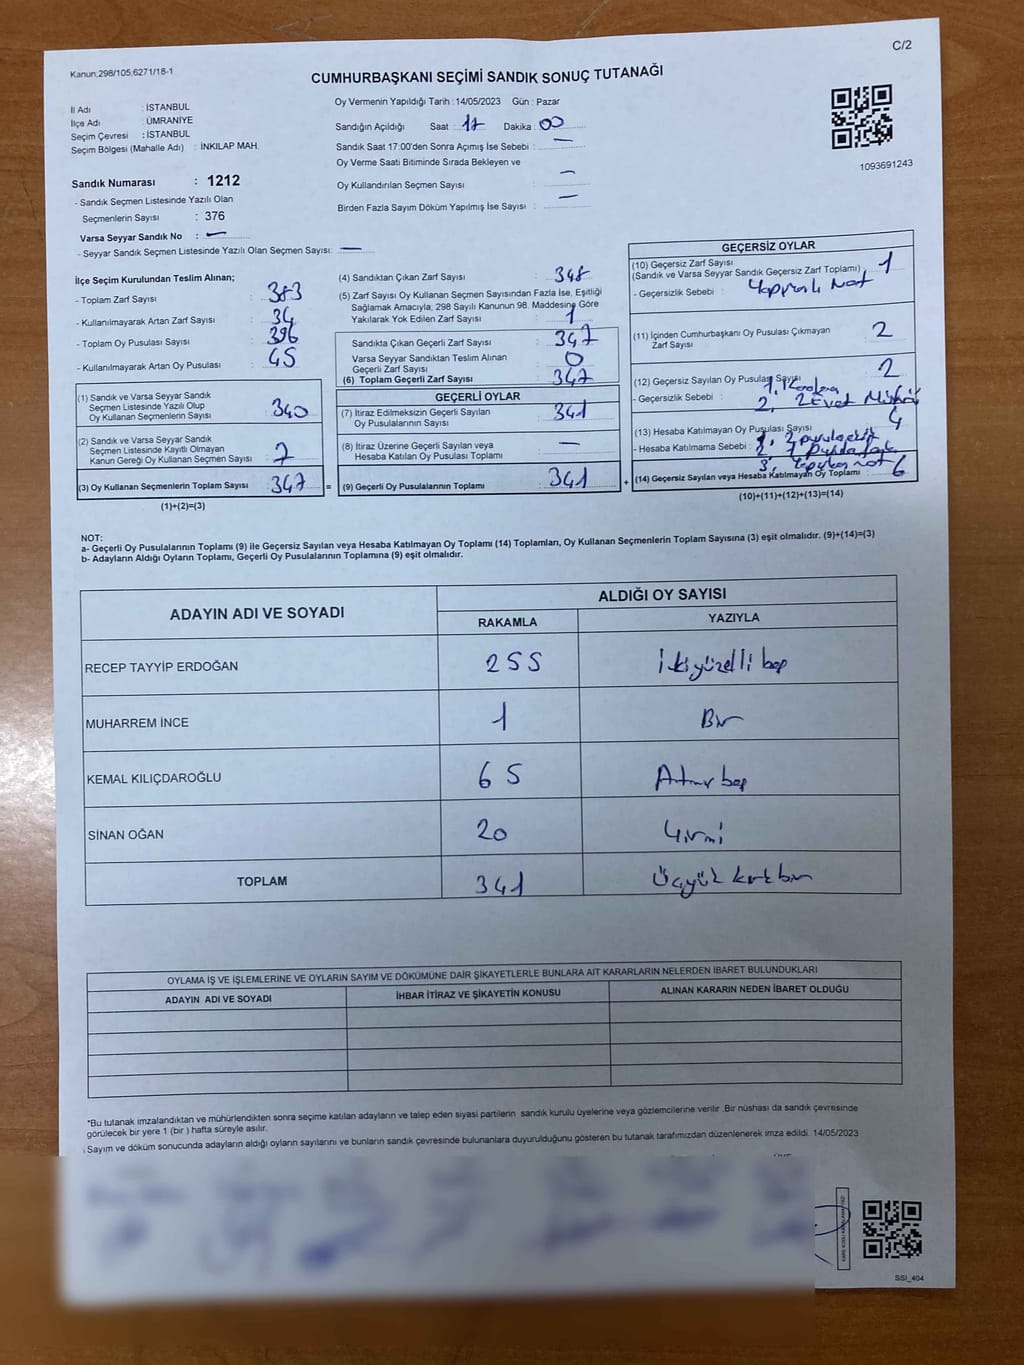 C/2
Kanun;298/105;6271/18-1
CUMHURBAŞKANI SEÇİMİ SANDIK SONUÇ TUTANAĞI
İl Adı : İSTANBUL
İlçe Adı : ÜMRANİYE
Seçim Çevresi : İSTANBUL
Seçim Bölgesi (Mahalle Adı) : İNKILAP MAH.
Sandık Numarası : 1212
- Sandık Seçmen Listesinde Yazılı Olan
Seçmenlerin Sayısı : 376
Varsa Seyyar Sandık No : —
- Seyyar Sandık Seçmen Listesinde Yazılı Olan Seçmen Sayısı: —
Oy Vermenin Yapıldığı Tarih :14/05/2023 Gün : Pazar
Sandığın Açıldığı Saat : 17 Dakika : 00
Sandık Saat 17:00'den Sonra Açımış İse Sebebi : —
Oy Verme Saati Bitiminde Sırada Bekleyen ve
Oy Kullandırılan Seçmen Sayısı : —
Birden Fazla Sayım Döküm Yapılmış İse Sayısı : —
1093691243
İlçe Seçim Kurulundan Teslim Alınan;
- Toplam Zarf Sayısı : 383
- Kullanılmayarak Artan Zarf Sayısı : 34
- Toplam Oy Pusulası Sayısı : 396
- Kullanılmayarak Artan Oy Pusulası : 45
(1) Sandık ve Varsa Seyyar Sandık
Seçmen Listesinde Yazılı Olup
Oy Kullanan Seçmenlerin Sayısı : 340
(2) Sandık ve Varsa Seyyar Sandık
Seçmen Listesinde Kayıtlı Olmayan
Kanun Gereği Oy Kullanan Seçmen Sayısı : 7
(3) Oy Kullanan Seçmenlerin Toplam Sayısı : 347 =
(1)+(2)=(3)
(4) Sandıktan Çıkan Zarf Sayısı : 348
(5) Zarf Sayısı Oy Kullanan Seçmen Sayısından Fazla İse, Eşitliği
Sağlamak Amacıyla, 298 Sayılı Kanunun 98. Maddesine Göre
Yakılarak Yok Edilen Zarf Sayısı : 1
Sandıkta Çıkan Geçerli Zarf Sayısı : 347
Varsa Seyyar Sandıktan Teslim Alınan
Geçerli Zarf Sayısı : 0
(6) Toplam Geçerli Zarf Sayısı : 347
GEÇERLİ OYLAR
(7) İtiraz Edilmeksizin Geçerli Sayılan
Oy Pusulalarının Sayısı : 341
(8) İtiraz Üzerine Geçerli Sayılan veya
Hesaba Katılan Oy Pusulası Toplamı : —
(9) Geçerli Oy Pusulalarının Toplamı : 341 +
GEÇERSİZ OYLAR
(10) Geçersiz Zarf Sayısı
(Sandık ve Varsa Seyyar Sandık Geçersiz Zarf Toplamı) : 1
- Geçersizlik Sebebi : Yapıralı Not
(11) İçinden Cumhurbaşkanı Oy Pusulası Çıkmayan
Zarf Sayısı : 2
(12) Geçersiz Sayılan Oy Pusulası Sayısı : 2
- Geçersizlik Sebebi : 1, 2, 2 Evet
(13) Hesaba Katılmayan Oy Pusulası Sayısı : 4
- Hesaba Katılmama Sebebi : 1, 2 2, 3, not
(14) Geçersiz Sayılan veya Hesaba Katılmayan Oy Toplamı : 6
(10)+(11)+(12)+(13)=(14)
NOT:
a- Geçerli Oy Pusulalarının Toplamı (9) ile Geçersiz Sayılan veya Hesaba Katılmayan Oy Toplamı (14) Toplamları, Oy Kullanan Seçmenlerin Toplam Sayısına (3) eşit olmalıdır. (9)+(14)=(3)
b- Adayların Aldığı Oyların Toplamı, Geçerli Oy Pusulalarının Toplamına (9) eşit olmalıdır.
ADAYIN ADI VE SOYADI ALDIĞI OY SAYISI
RAKAMLA YAZIYLA
RECEP TAYYİP ERDOĞAN 255 ikiyüzelli beş
MUHARREM İNCE 1 Bir
KEMAL KILIÇDAROĞLU 65 Atmış beş
SİNAN OĞAN 20 Yirmi
TOPLAM 341 Üçyüz kırk bir
OYLAMA İŞ VE İŞLEMLERİNE VE OYLARIN SAYIM VE DÖKÜMÜNE DAİR ŞİKAYETLERLE BUNLARA AİT KARARLARIN NELERDEN İBARET BULUNDUKLARI
ADAYIN ADI VE SOYADI İHBAR İTİRAZ VE ŞİKAYETİN KONUSU ALINAN KARARIN NEDEN İBARET OLDUĞU
*Bu tutanak imzalandıktan ve mühürlendikten sonra seçime katılan adayların ve talep eden siyasi partilerin sandık kurulu üyelerine veya gözlemcilerine verilir .Bir nüshası da sandık çevresinde
görülecek bir yere 1 (bir ) hafta süreyle asılır.
Sayım ve döküm sonucunda adayların aldığı oyların sayılarını ve bunların sandık çevresinde bulunanlara duyurulduğunu gösteren bu tutanak tarafımızdan düzenlenerek imza edildi. 14/05/2023
SSI_404